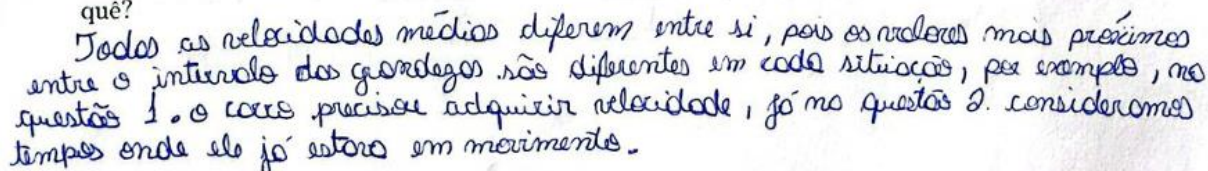 quê?
Todas as velocidades médias diferem entre si, pois os valores mais próximos
entre o intervalo das grandezas são diferentes em cada situação, por exemplo, na
questão 1. o carro precisou adquirir velocidade, já na questão 2. consideramos
tempos onde ele já estava em movimento.